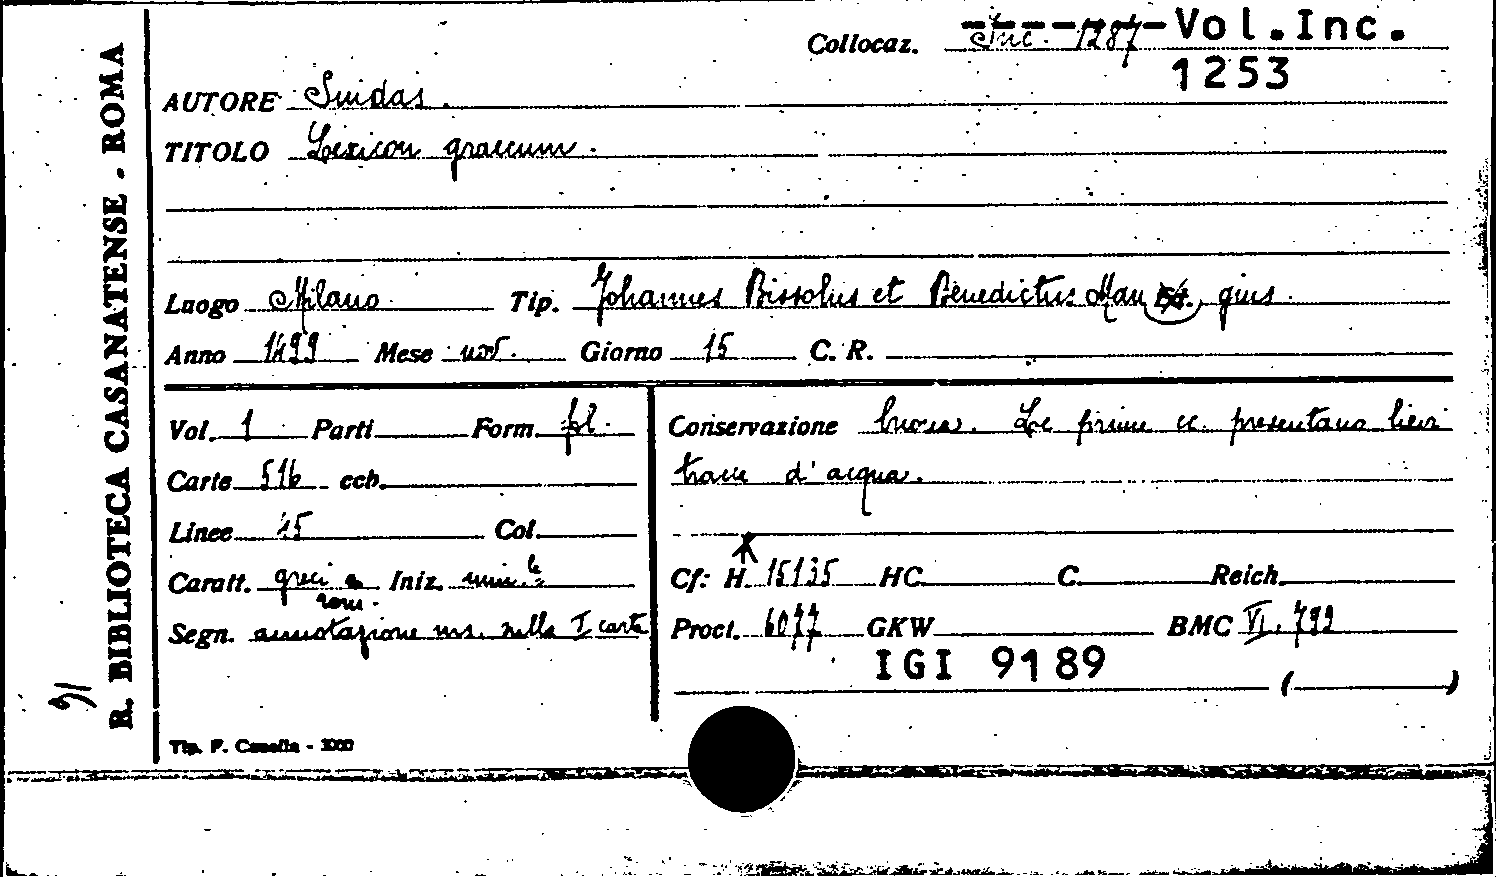 R. BIBLIOTECA CASANATENSE - ROMA
Collocaz. Inc. 1287 Vol.Inc.
1253
AUTORE Suidas.
TITOLO Lexicon graecum.
Luogo Milano Tip. Johannes Bissolus et Benedictus Man gius
Anno 1499 Mese nov. Giorno 15 C. R.
Vol. 1 Parti Form. fol.
Carte 516 ccb.
Linee 45 Col.
Caratt. greci e Iniz. min.le
rom.
Segn. annotazione ms. nella I carta
Conservazione buona. Le prime cc. presentano lievi
tracce d'acqua.
Cf: H. 15135 HC. C. Reich.
Proct. 6077 GKW BMC VI, 792
IGI 9189
( )
Tip. F. Canella -